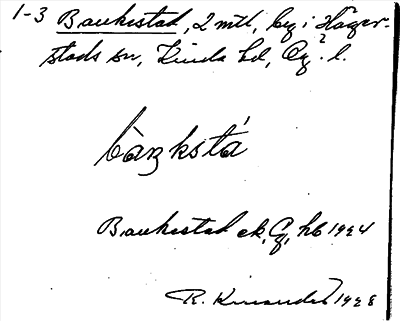 1-3 Bankestad, 2 mtl, by i Häger-
stads sn, Kinda hd, Ög. l.
bàŋkstá
Bankestad ek, Q, hb 1924
R. Kinander 1928